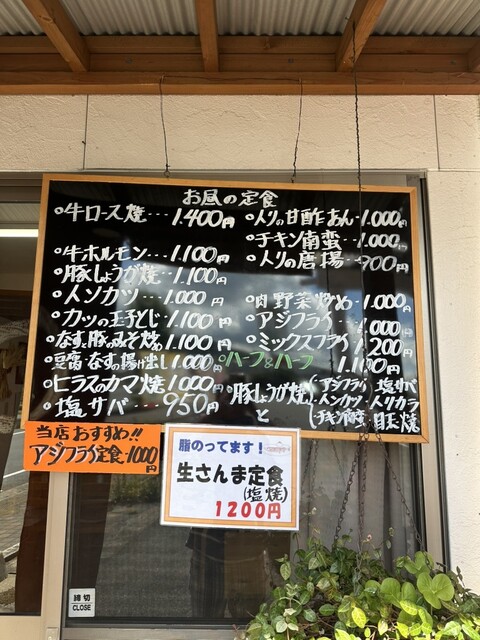 お昼の定食
○牛ロース焼…1.400円
○牛ホルモン…1.100円
○豚しょうが焼…1.100円
○メンカツ…1.000円
○カツの玉子とじ…1.100円
○なす、豚のみそ炒め1.100円
○豆腐・なすの揚げ出し1.000円
○ヒラスのカマ焼1.000円
○塩サバ…950円
○トリの甘酢あん…1.000円
○チキン南蛮…1.000円
○トリの唐揚…900円
○肉野菜炒め…1.000円
○アジフライ…1.000円
○ミックスフライ1.200円
○ハーフ&ハーフ
1.100円
豚しょうが焼と
(アジフライ・塩サバ
メンカツ・トリカラ
チキン南蛮・目玉焼)
当店おすすめ!!
アジフライ定食…1000円
脂のってます!
生さんま定食
(塩焼)
1200円
締切
CLOSE